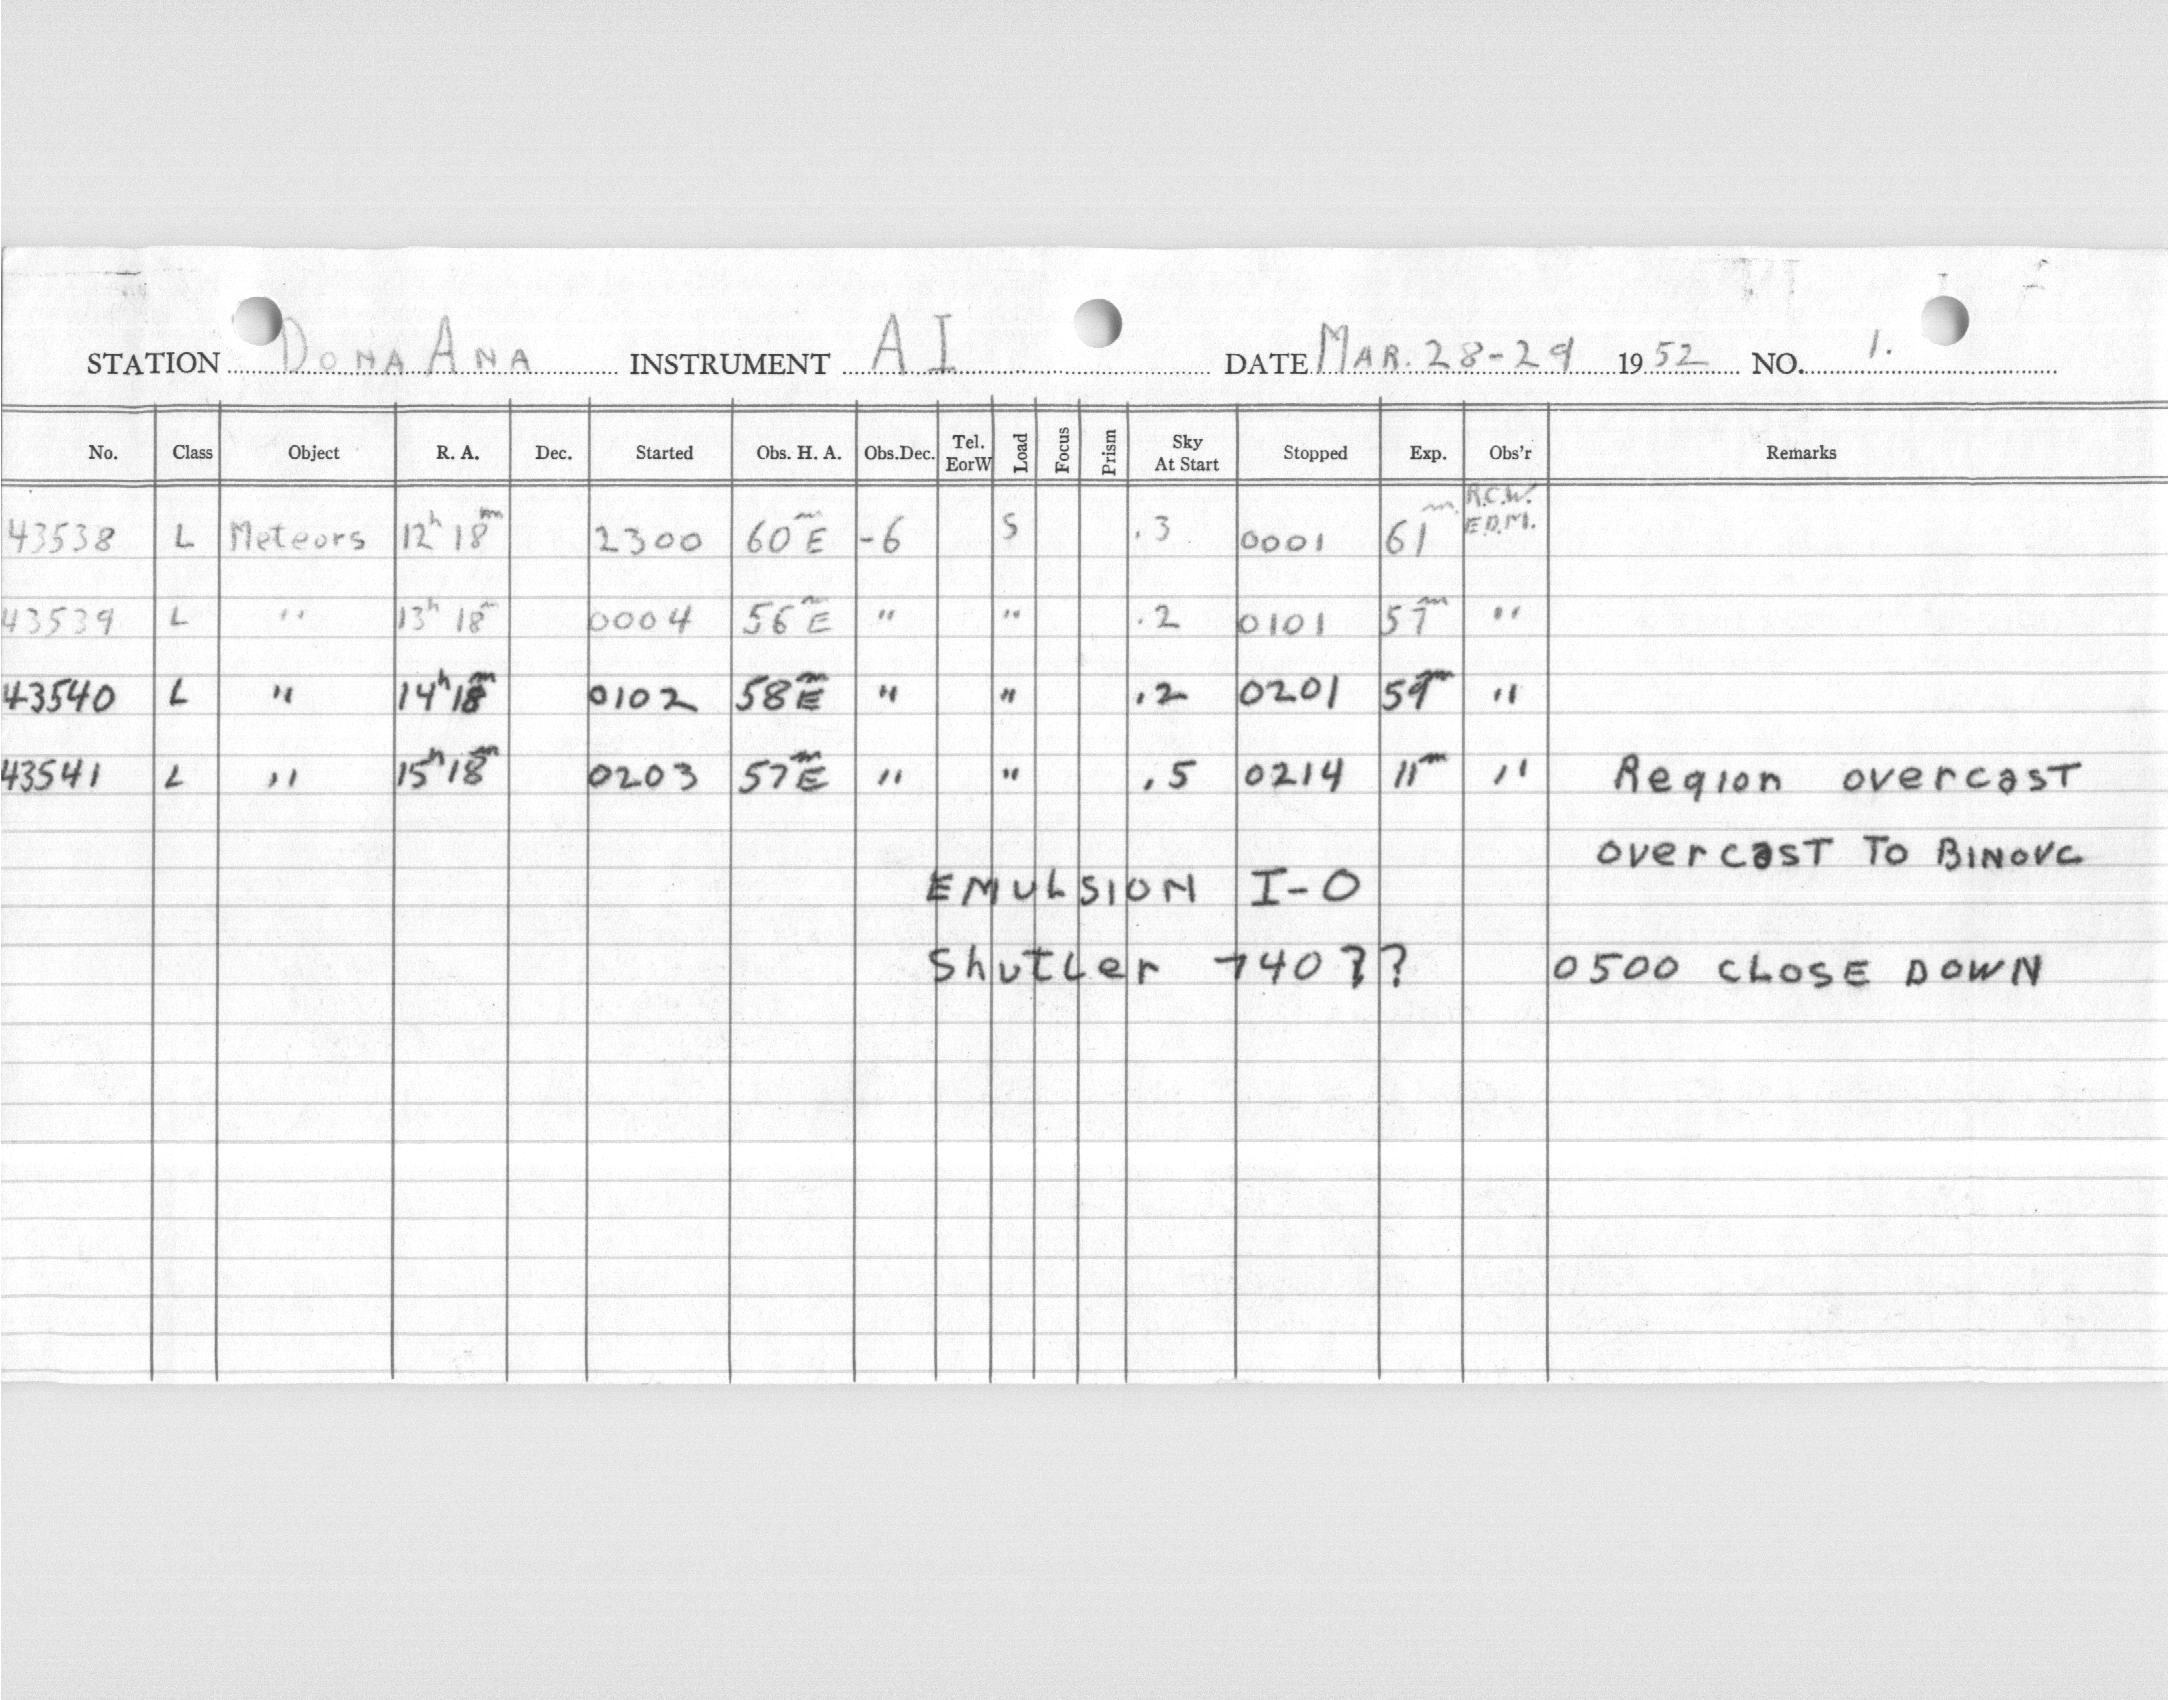 STATION Dona Ana INSTRUMENT AI DATE Mar. 28-29 1952 NO. 1.
No. Class Object R. A. Dec. Started Obs. H. A. Obs.Dec. Tel. EorW Load Focus Prism Sky At Start Stopped Exp. Obs'r Remarks
43538 L Meteors 12h 18m 2300 60m E -6 S .3 0001 61m R.C.W. E.D.M.
43539 L " 13h 18m 0004 56m E " " .2 0101 57m "
43540 L " 14h 18m 0102 58m E " " .2 0201 59m "
43541 L " 15h 18m 0203 57m E " " .5 0214 11m " Region overcast
overcast To BINOVC
EMULSION I-O
Shutter 740?? 0500 CLOSE DOWN